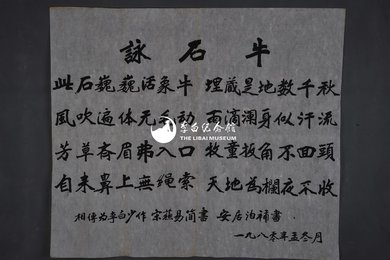 詠石牛
此石巍巍活象牛 埋藏是地数千秋
風吹遍体无毛动 雨滴满身似汗流
芳草斋眉弗入口 牧童扳角不回頭
自来鼻上無绳索 天地為欄夜不收
相傳为李白少作 宗燕易简書 安居泊補書
一九八零年孟冬月
李白纪念馆
THE LIBAI MUSEUM